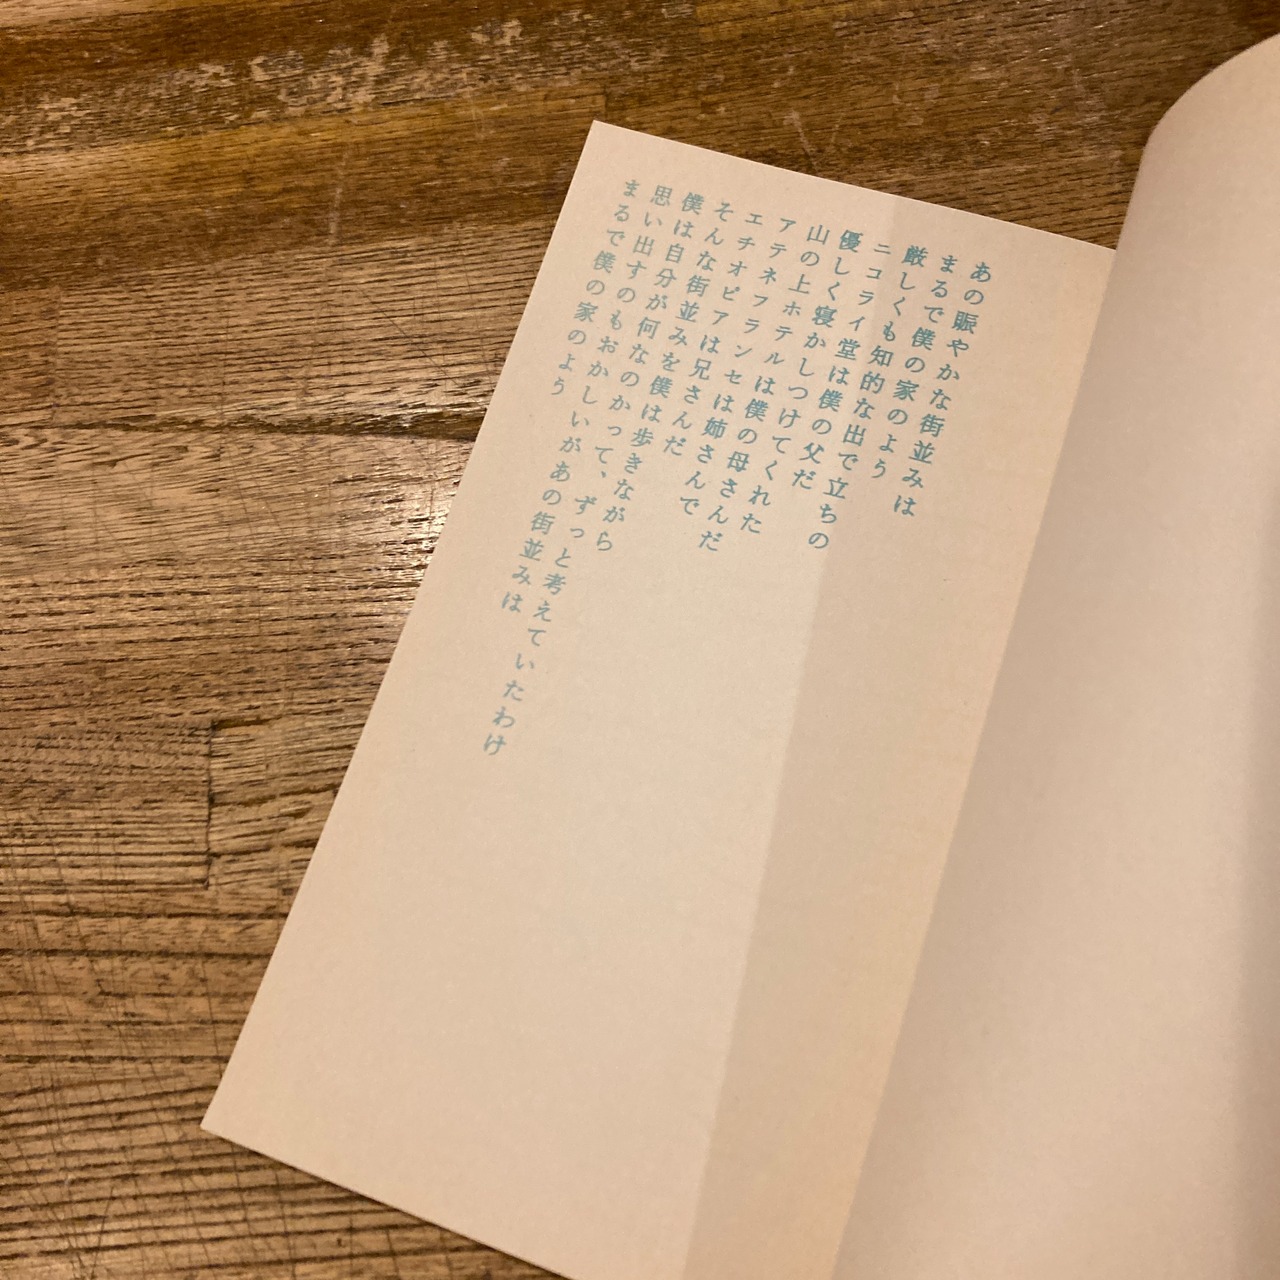 あの賑やかな街並みは
まるで僕の家のよう
厳しくも知的な出で立ちの
ニコライ堂は僕の父だ
優しく寝かしつけてくれた
山の上ホテルは僕の母さんだ
アテネフランセは姉さんで
エチオピアは兄さんだ
そんな街並みを僕は歩きながら
僕は自分が何なのかって、ずっと考えていたわけ
思い出すのもおかしいがあの街並みは
まるで僕の家のよう